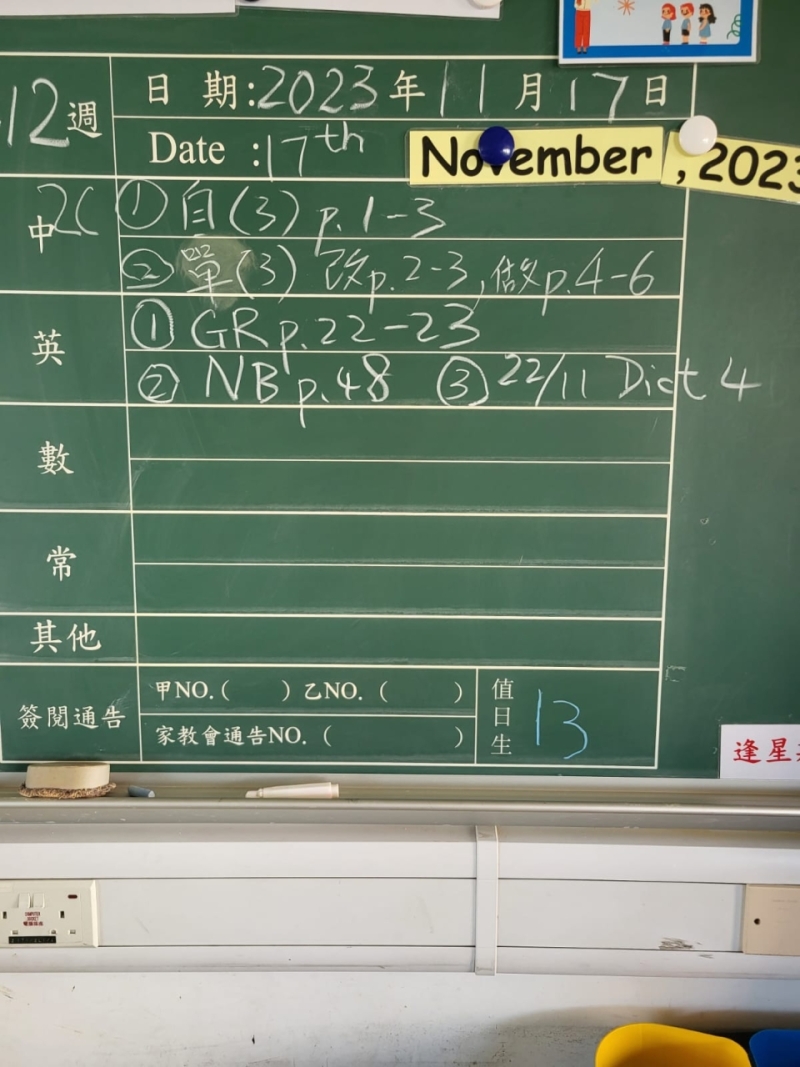 12週
日 期:2023年11月17日
Date :17th November , 2023
中 2( ① 自(3) p.1-3
② 單(3) 改p.2-3, 做p.4-6
英 ① GR p.22-23
② NB p.48 ③ 22/11 Dict 4
數
常
其他
簽閱通告
甲NO.( ) 乙NO. ( )
家教會通告NO. ( )
值日生 13
逢星